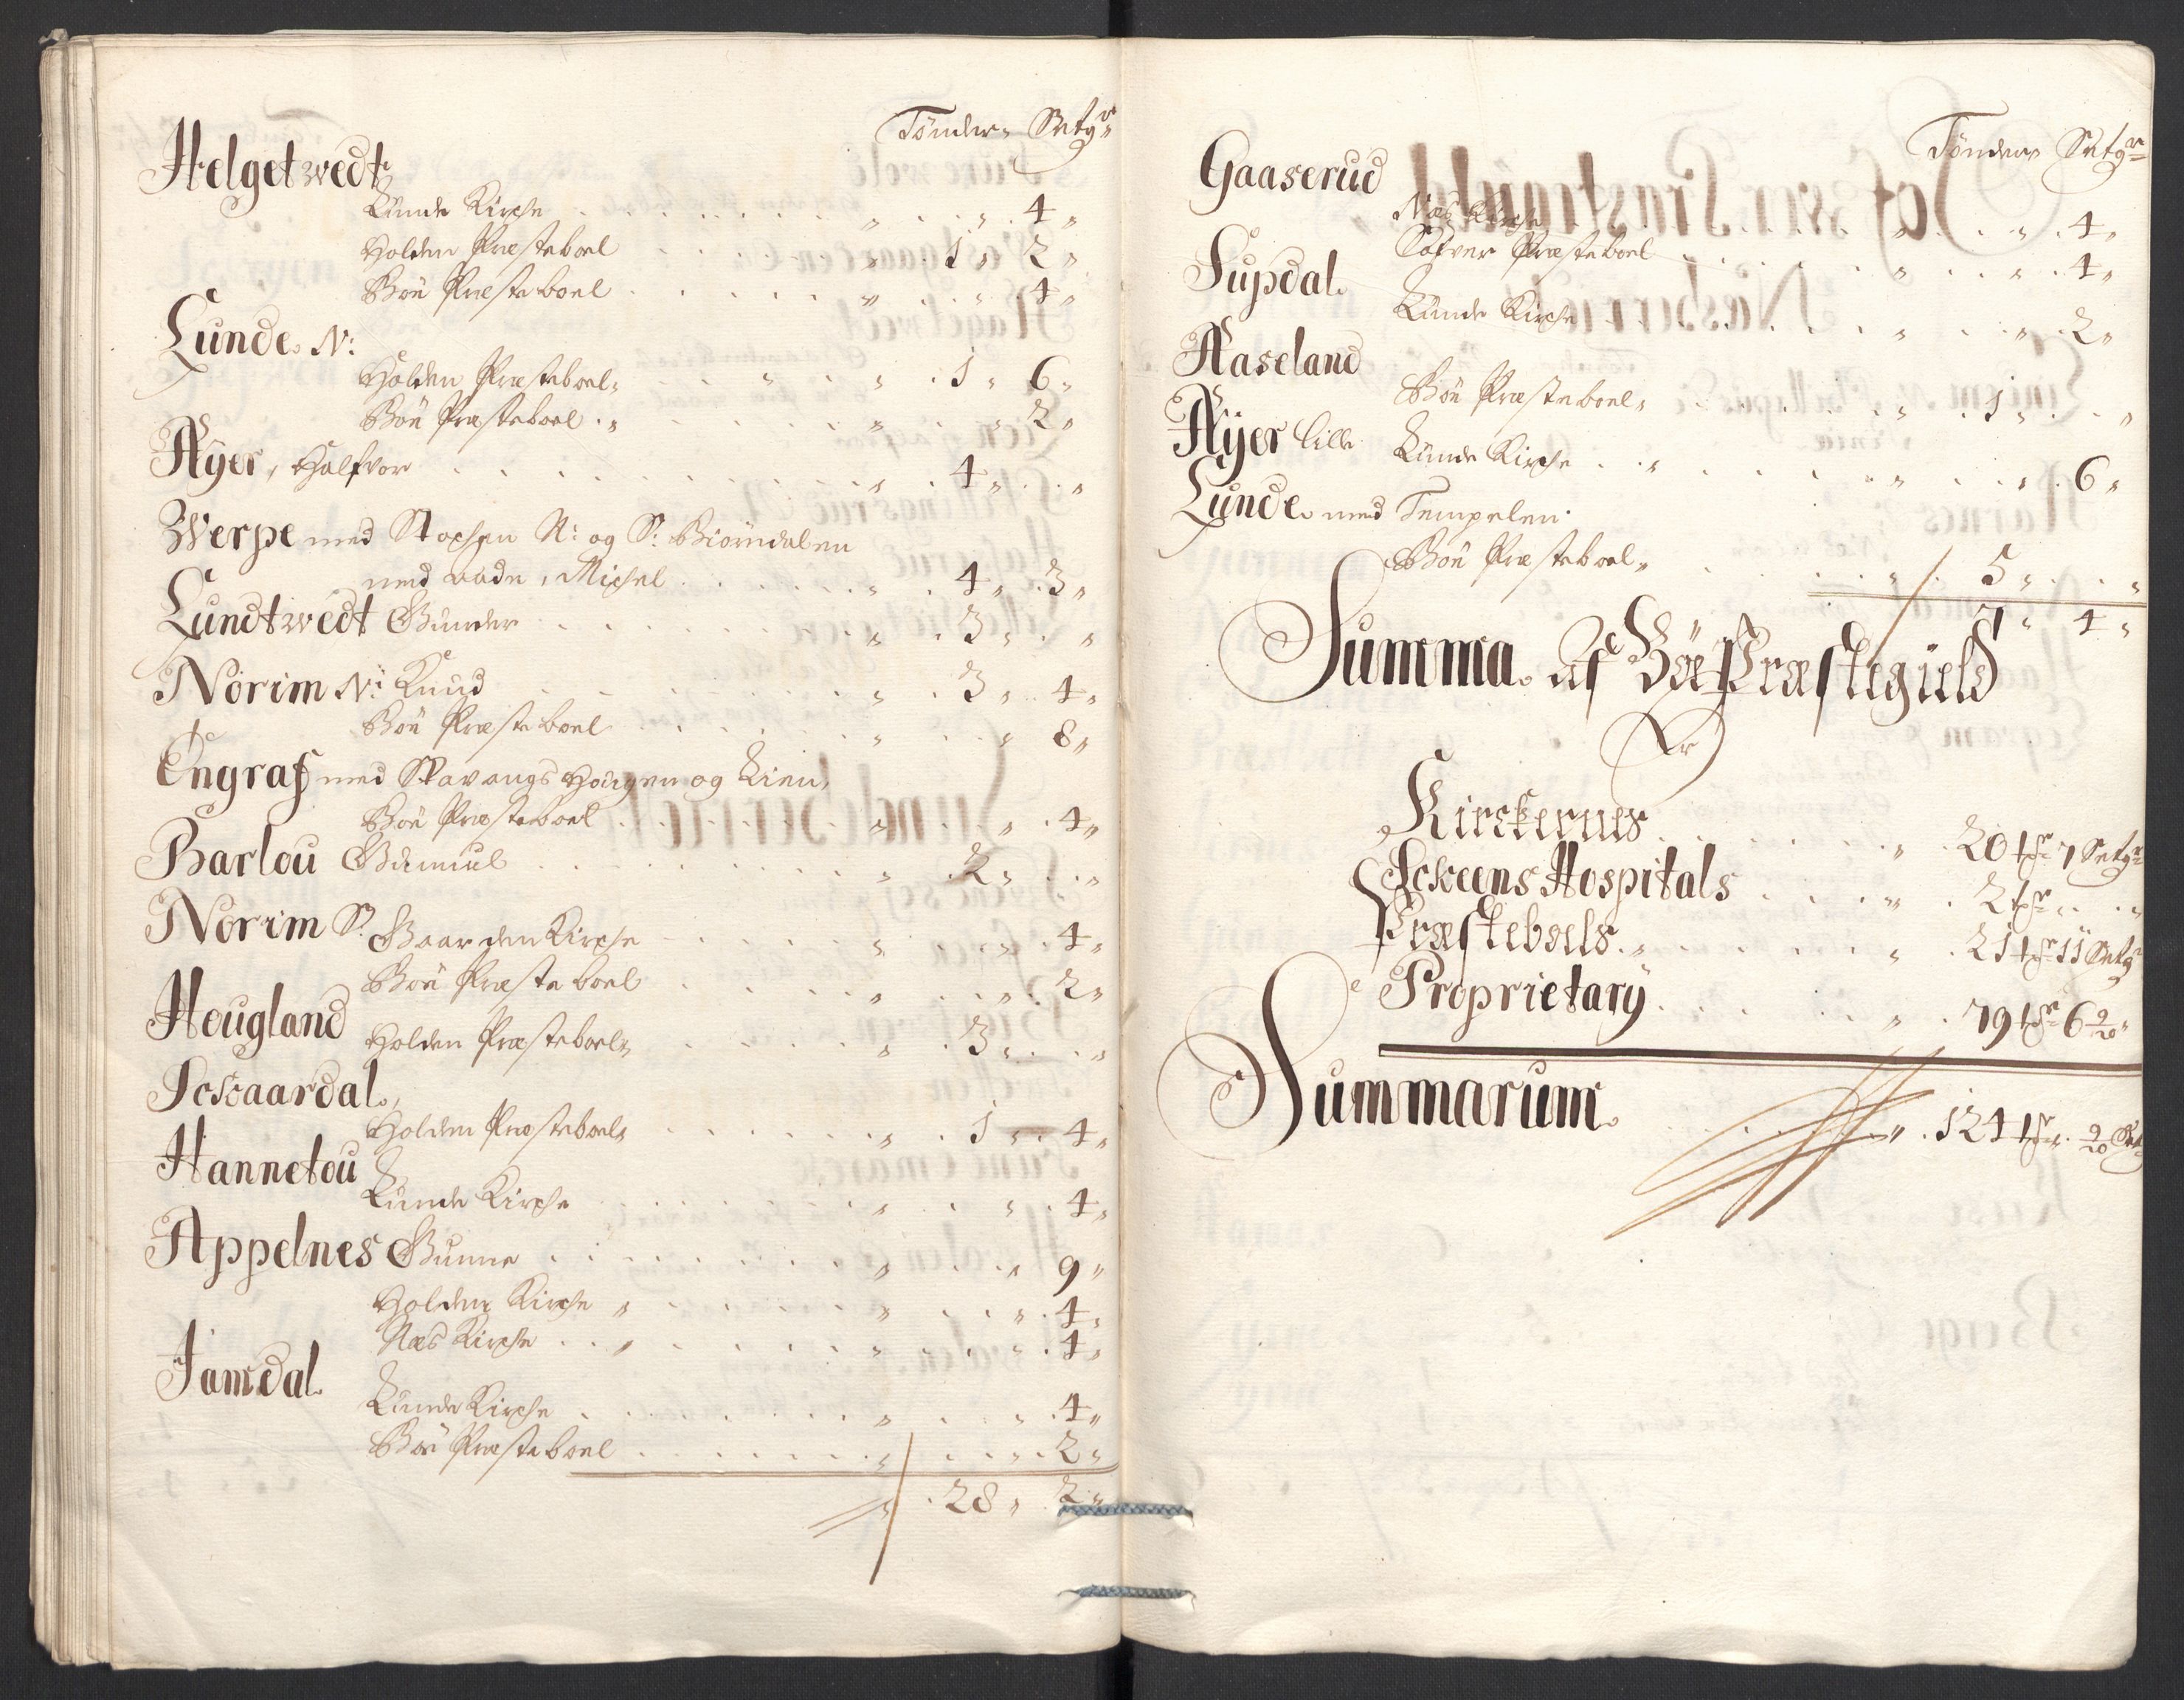 Tönder Setgr
Helgetwedt
Lunde Kirche 4
Holden Præsteboel 1 2
Böe Præsteboel 4
Lunde N:
Holden Præsteboel 1 6
Böe Præsteboel 2
Aÿer, Halfvor 4
Werpe med Stochen N: og S: Biörndalen
med aade, Michel 4 3
Lundtwedt Gunder 3
Norim N: Knud 3 4
Böe Præsteboel 8
Engraf med Skavangs Hougen og Lien,
Böe Præsteboel 4
Barlou Gamuel 2
Norim S: Gaarden Kirche 4
Böe Præsteboel 2
Hougland
Holden Præsteboel 3
Sckaardal,
Holden Præsteboel 1 4
Hannetou
Lunde Kirche 4
Appelnes Gunne 9
Holden Kirche 4
Næs Kirche 4
Jamdal
Lunde Kirche 4
Böe Præsteboel 2
28 2
Tönder Setgr
Gaaserud
Næs Kirche 4
Præsteboel 4
Supdal
Lunde Kirche 2
Aaseland
Böe Præsteboel 1
Aÿer lille Lunde Kirche 6
Lunde med Tempelen
Böe Præsteboel 5
7 4
Summa af Böe Præstegield
Er
Kirckernes 20 tdr 7 Setgr
Sckeens Hospitals 2 tdr
Præsteboels 21 tdr 11 Setgr
Proprietarÿ 79 tdr 6 9/20
Summarum 124 tdr 9/20 Set